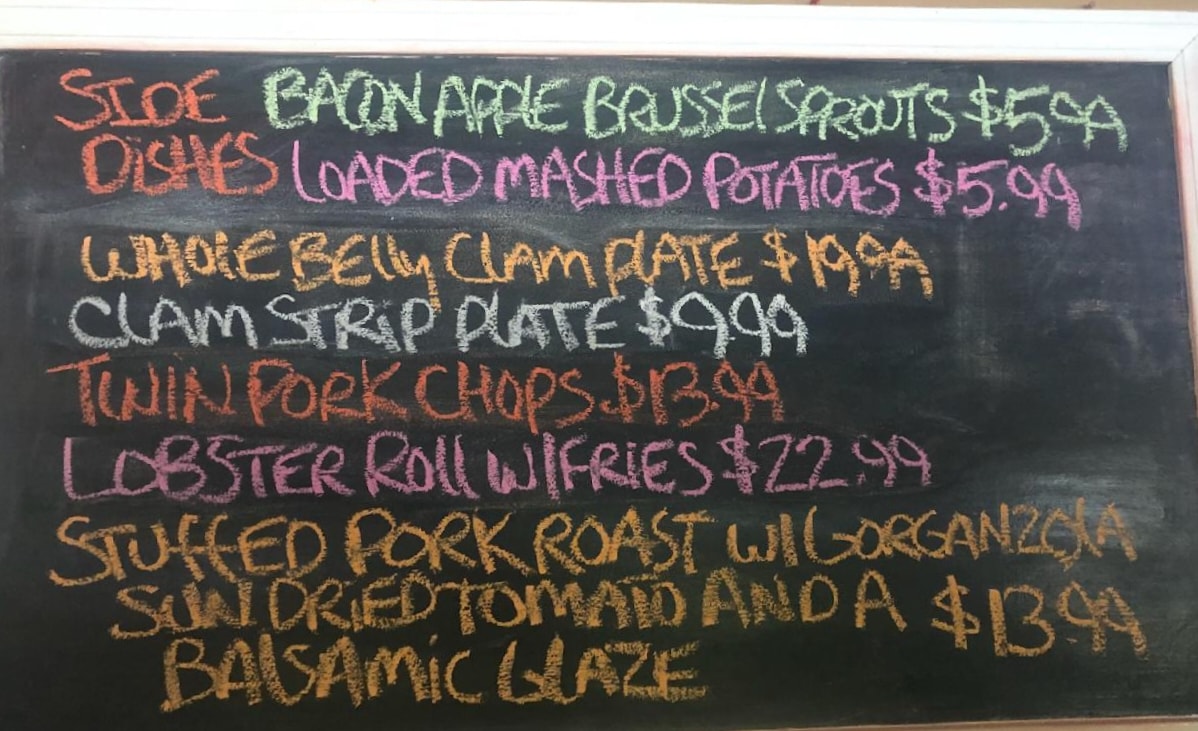 SIDE BACON APPLE BRUSSEL SPROUTS $5.99
DISHES LOADED MASHED POTATOES $5.99
WHOLE BELLY CLAM PLATE $19.99
CLAM STRIP PLATE $9.99
TWIN PORK CHOPS $13.99
LOBSTER ROLL W/FRIES $22.99
STUFFED PORK ROAST W/GORGANZOLA
SUN DRIED TOMATO AND A $13.99
BALSAMIC GLAZE